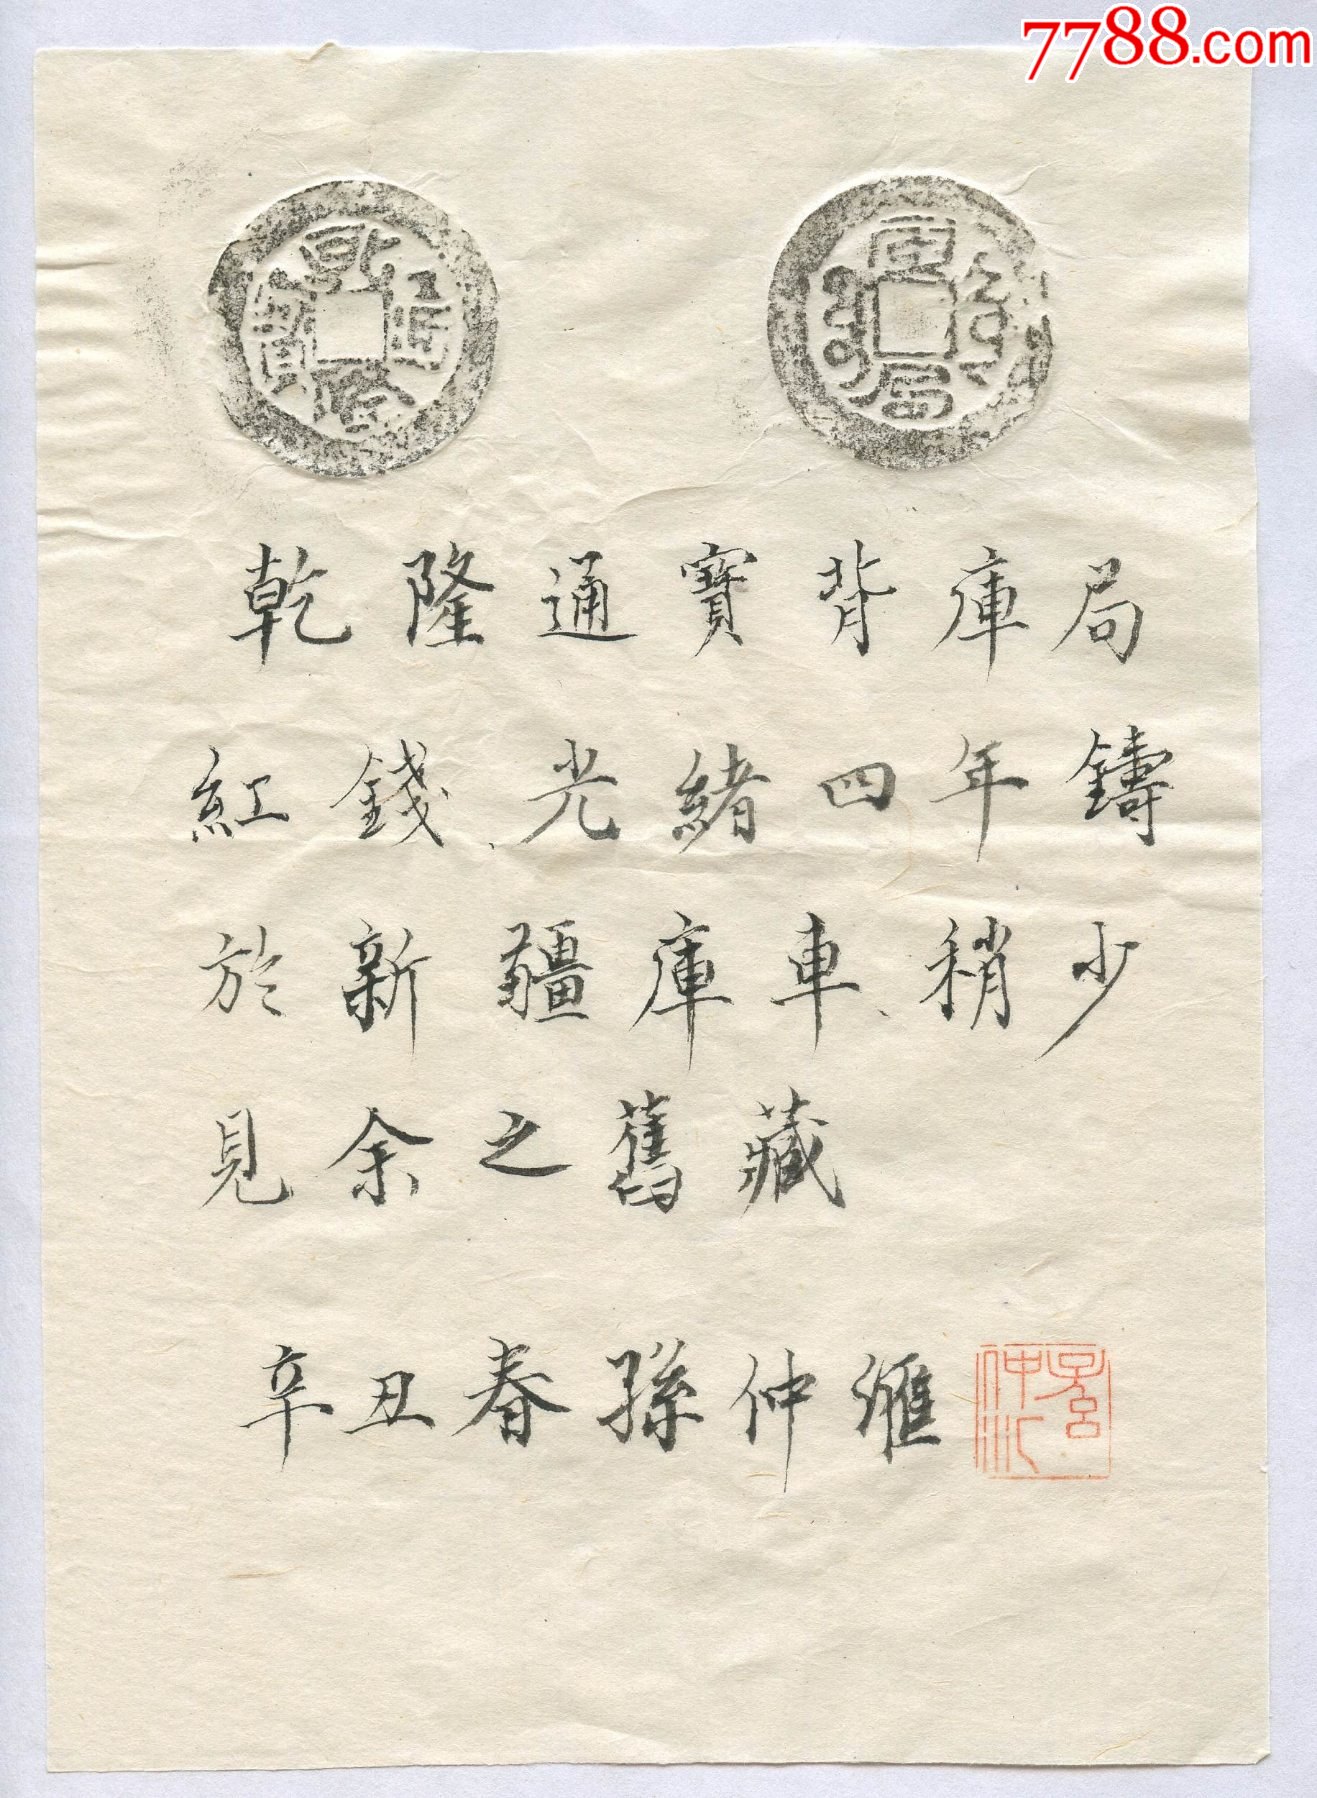 7788.com
乾隆通寶
庫局
乾隆通寶背庫局
紅錢、光緒四年鑄
於新疆庫車、稍少
見余之舊藏
辛丑春孫仲滙